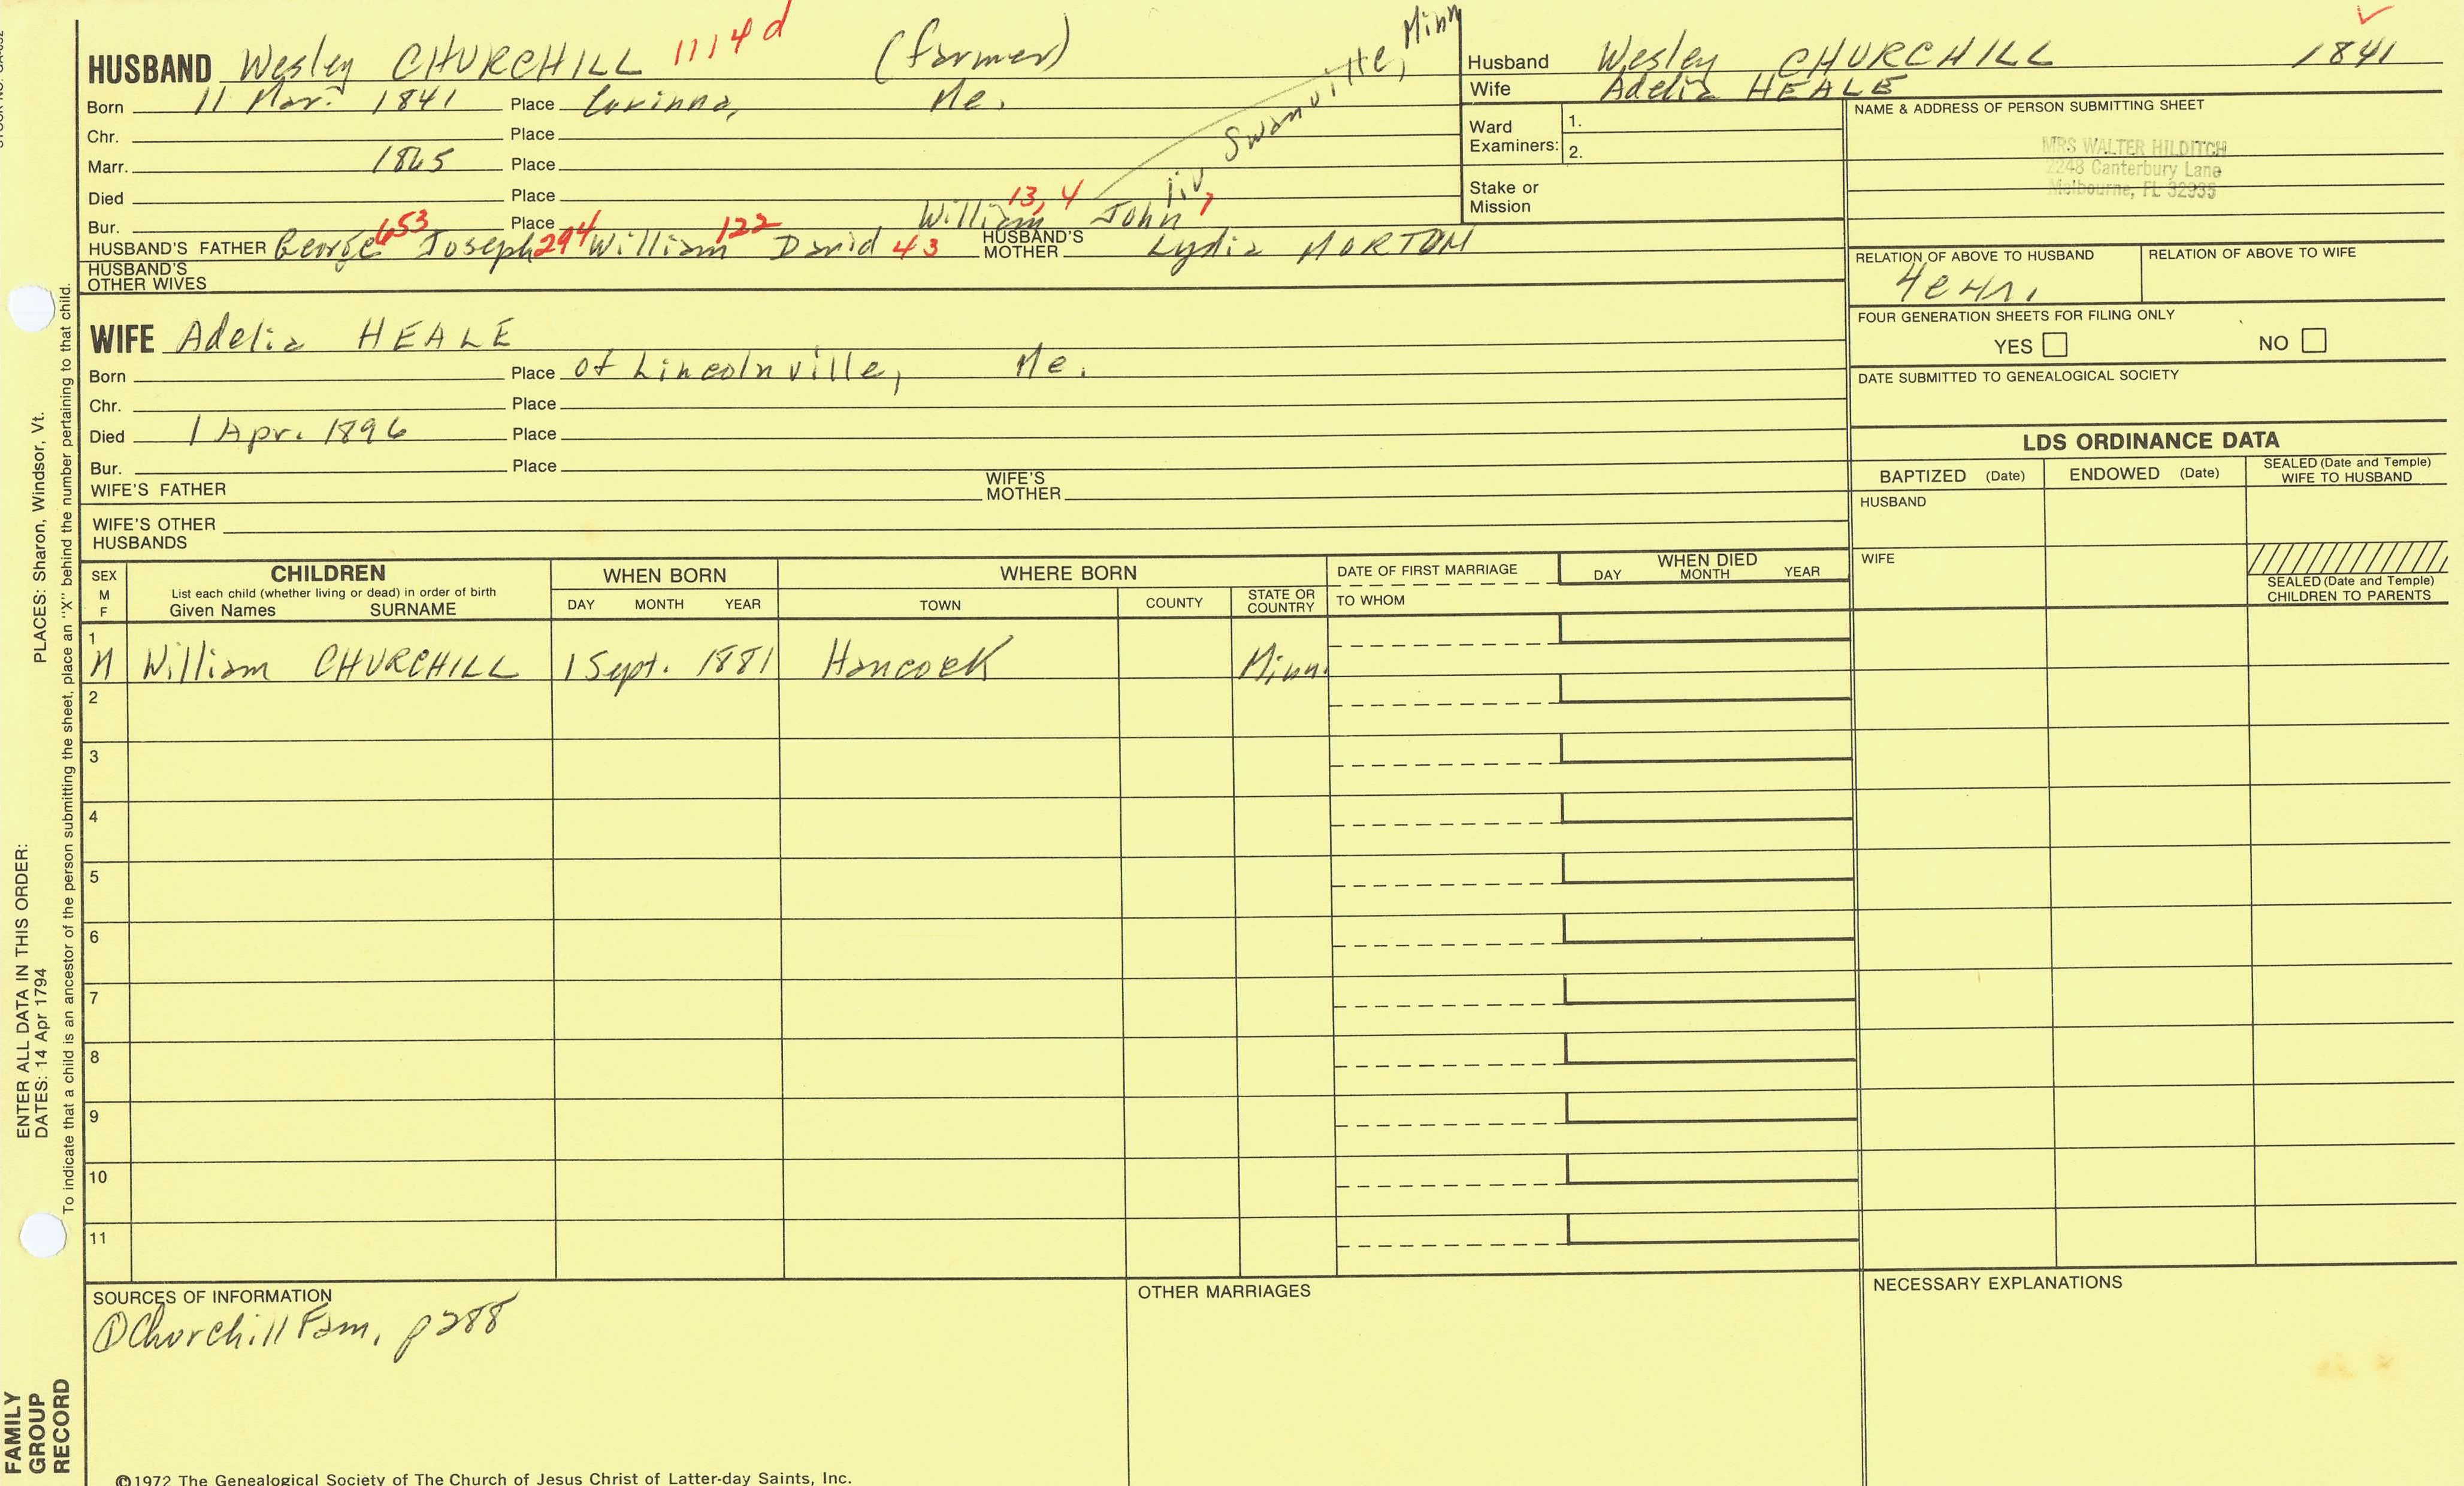 HUSBAND Wesley CHURCHILL 1114d (farmer)
Born 11 Mar. 1841 Place Corinna, Me.
Chr. Place
Marr. 1865 Place
Died Place
liv Swanville, Minn
Bur. Place William 13, 4 John 1
HUSBAND'S FATHER George 653 Joseph 294 William 122 David 43 HUSBAND'S MOTHER Lydia MORTON
HUSBAND'S OTHER WIVES
Husband Wesley CHURCHILL 1841
Wife Adelia HEALE
Ward Examiners: 1.
2.
Stake or Mission
NAME & ADDRESS OF PERSON SUBMITTING SHEET
MRS WALTER HILDITCH
2248 Canterbury Lane
Melbourne, FL 32935
RELATION OF ABOVE TO HUSBAND RELATION OF ABOVE TO WIFE
FOUR GENERATION SHEETS FOR FILING ONLY
YES NO
DATE SUBMITTED TO GENEALOGICAL SOCIETY
WIFE Adelia HEALE
Born Place of Lincolnville, Me.
Chr. Place
Died 1 Apr. 1896 Place
Bur. Place
WIFE'S FATHER WIFE'S MOTHER
WIFE'S OTHER HUSBANDS
LDS ORDINANCE DATA
BAPTIZED (Date) ENDOWED (Date) SEALED (Date and Temple) WIFE TO HUSBAND
HUSBAND
WIFE
SEALED (Date and Temple) CHILDREN TO PARENTS
SEX M F
CHILDREN
List each child (whether living or dead) in order of birth
Given Names SURNAME
WHEN BORN
DAY MONTH YEAR
WHERE BORN
TOWN COUNTY STATE OR COUNTRY
DATE OF FIRST MARRIAGE
TO WHOM
WHEN DIED
DAY MONTH YEAR
1
M William CHURCHILL 1 Sept. 1881 Hancock Minn.
2
3
4
5
6
7
8
9
10
11
SOURCES OF INFORMATION
① Churchill Fam, p 288
OTHER MARRIAGES
NECESSARY EXPLANATIONS
©1972 The Genealogical Society of The Church of Jesus Christ of Latter-day Saints, Inc.
ENTER ALL DATA IN THIS ORDER:
DATES: 14 Apr 1794 PLACES: Sharon, Windsor, Vt.
To indicate that a child is an ancestor of the person submitting the sheet, place an "X" behind the number pertaining to that child.
FAMILY
GROUP
RECORD